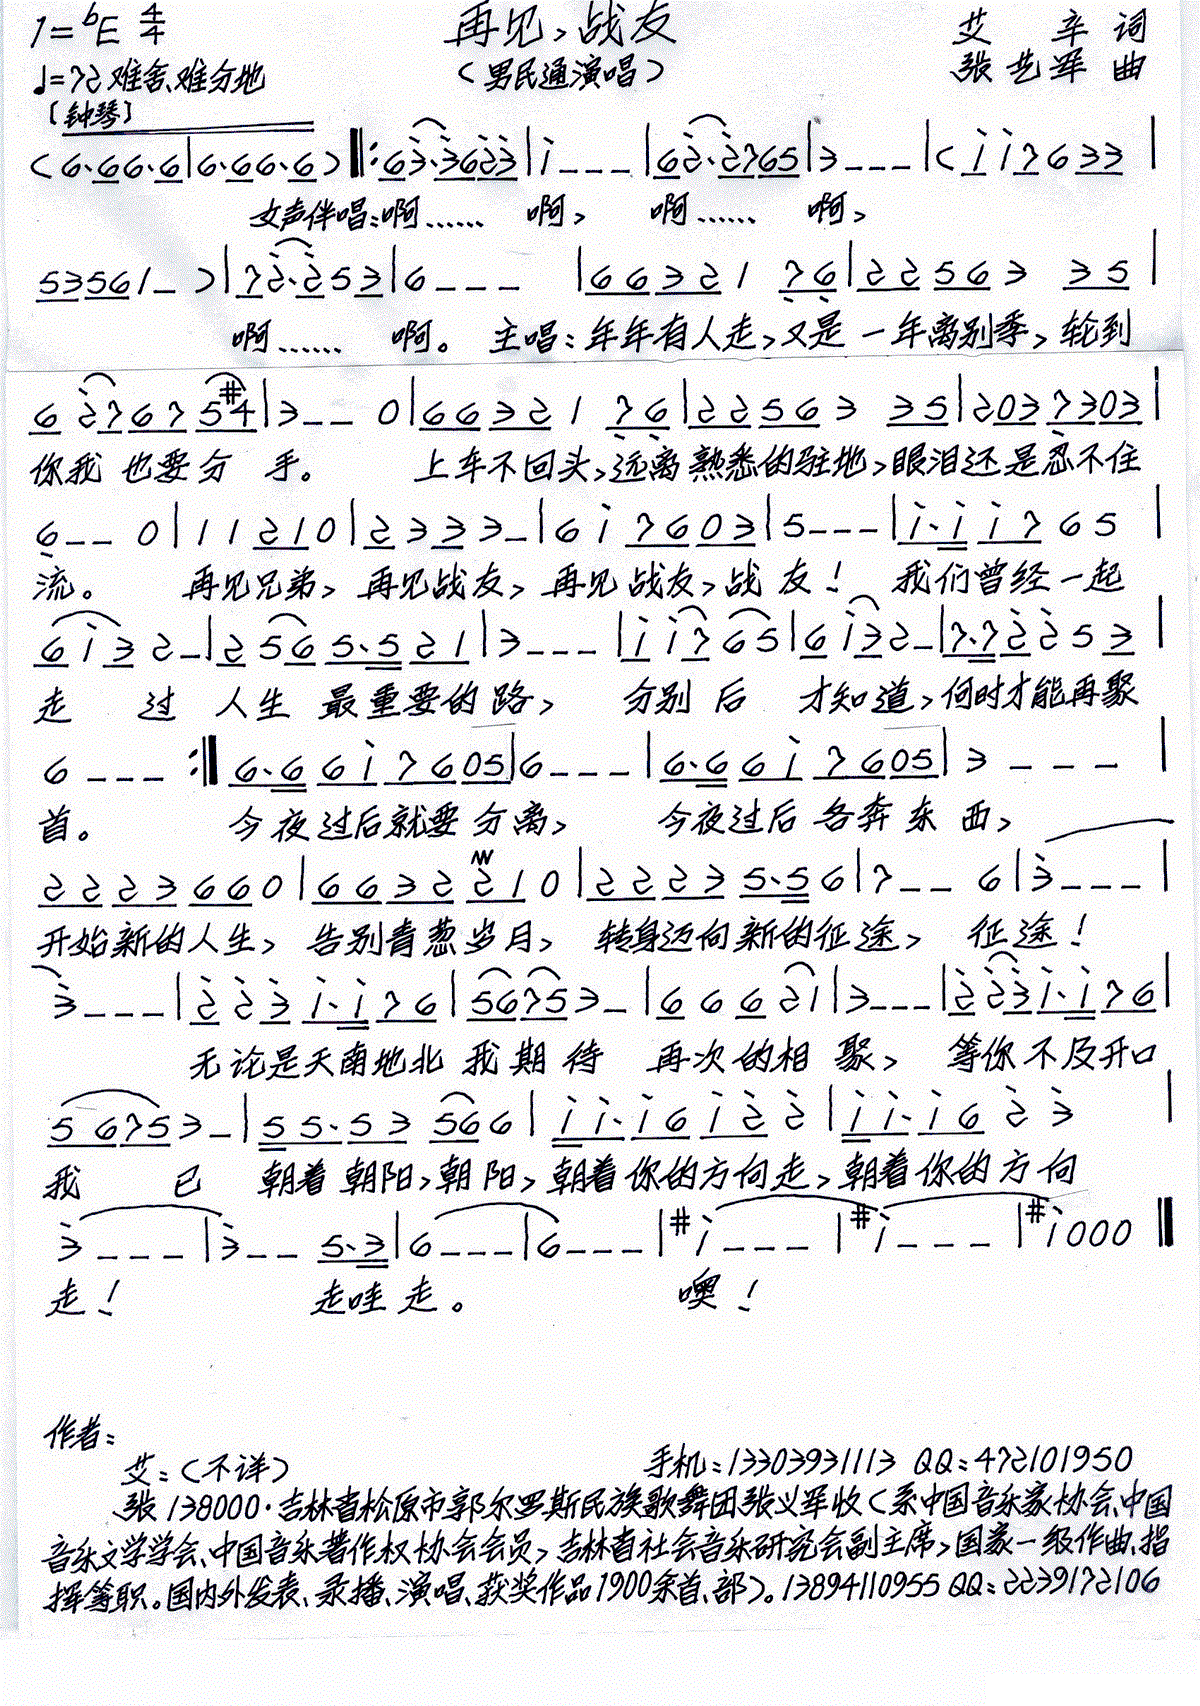 1=bE 4/4 再见,战友 艾辛 词
♩=72 难舍、难分地 (男民通演唱) 张艺军 曲
[钟琴]
(6·66·6|6·66·6)‖:63·3623|1---|62·2765|3---|(117633|
女声伴唱:啊…… 啊, 啊…… 啊,
53561-)|72·253|6---|66321 76|22563 35|
啊…… 啊。 主唱:年年有人走,又是一年离别季,轮到
627675#4|3--0|66321 76|22563 35|2037303|
你我也要分手。 上车不回头,远离熟悉的驻地,眼泪还是忍不住
6--0|11210|2333-|617603|5---|1·11765|
流。 再见兄弟, 再见战友, 再见战友,战友! 我们曾经一起
6132-|2565·521|3---|11765|6132-|7·72253|
走过人生最重要的路, 分别后才知道,何时才能再聚
6---:‖6·6617605|6---|6·6617605|3---|
首。 今夜过后就要分离, 今夜过后各奔东西,
2223660|6632210|22235·56|7--6|3---|
开始新的人生, 告别青葱岁月, 转身迈向新的征途, 征途!
3---|2231·176|56753-|66621|3---|2231·176|
无论是天南地北我期待 再次的相聚, 等你不及开口
56753-|55·53566|11·16122|11·1623|
我已 朝着朝阳,朝阳,朝着你的方向走,朝着你的方向
3---|3--5·3|6---|6---|#1---|#1---|#1000‖
走! 走哇走。 噢!
作者:
艾:(不详) 手机:13303931113 QQ:472101950
张 138000·吉林省松原市郭尔罗斯民族歌舞团张义军收(系中国音乐家协会、中国
音乐文学学会、中国音乐著作权协会会员,吉林省社会音乐研究会副主席,国家一级作曲、指
挥等职。国内外发表、录播、演唱、获奖作品1900余首、部)。13894110955 QQ:2239172106